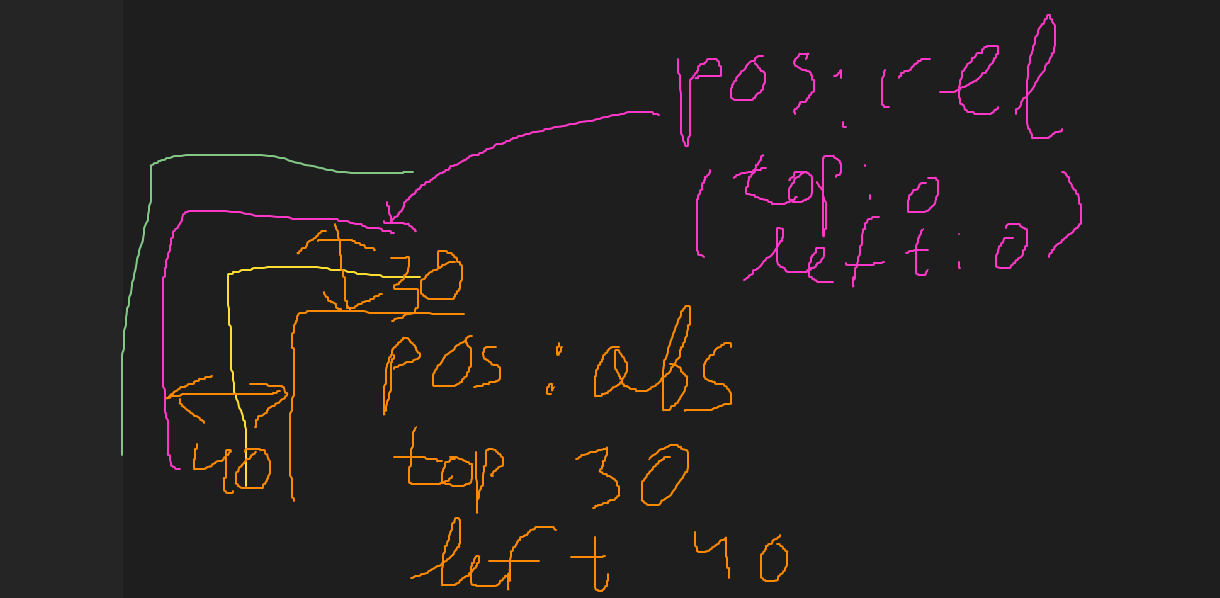 pos:rel
(top:0
left:0)
30
pos:abs
40
top 30
left 40